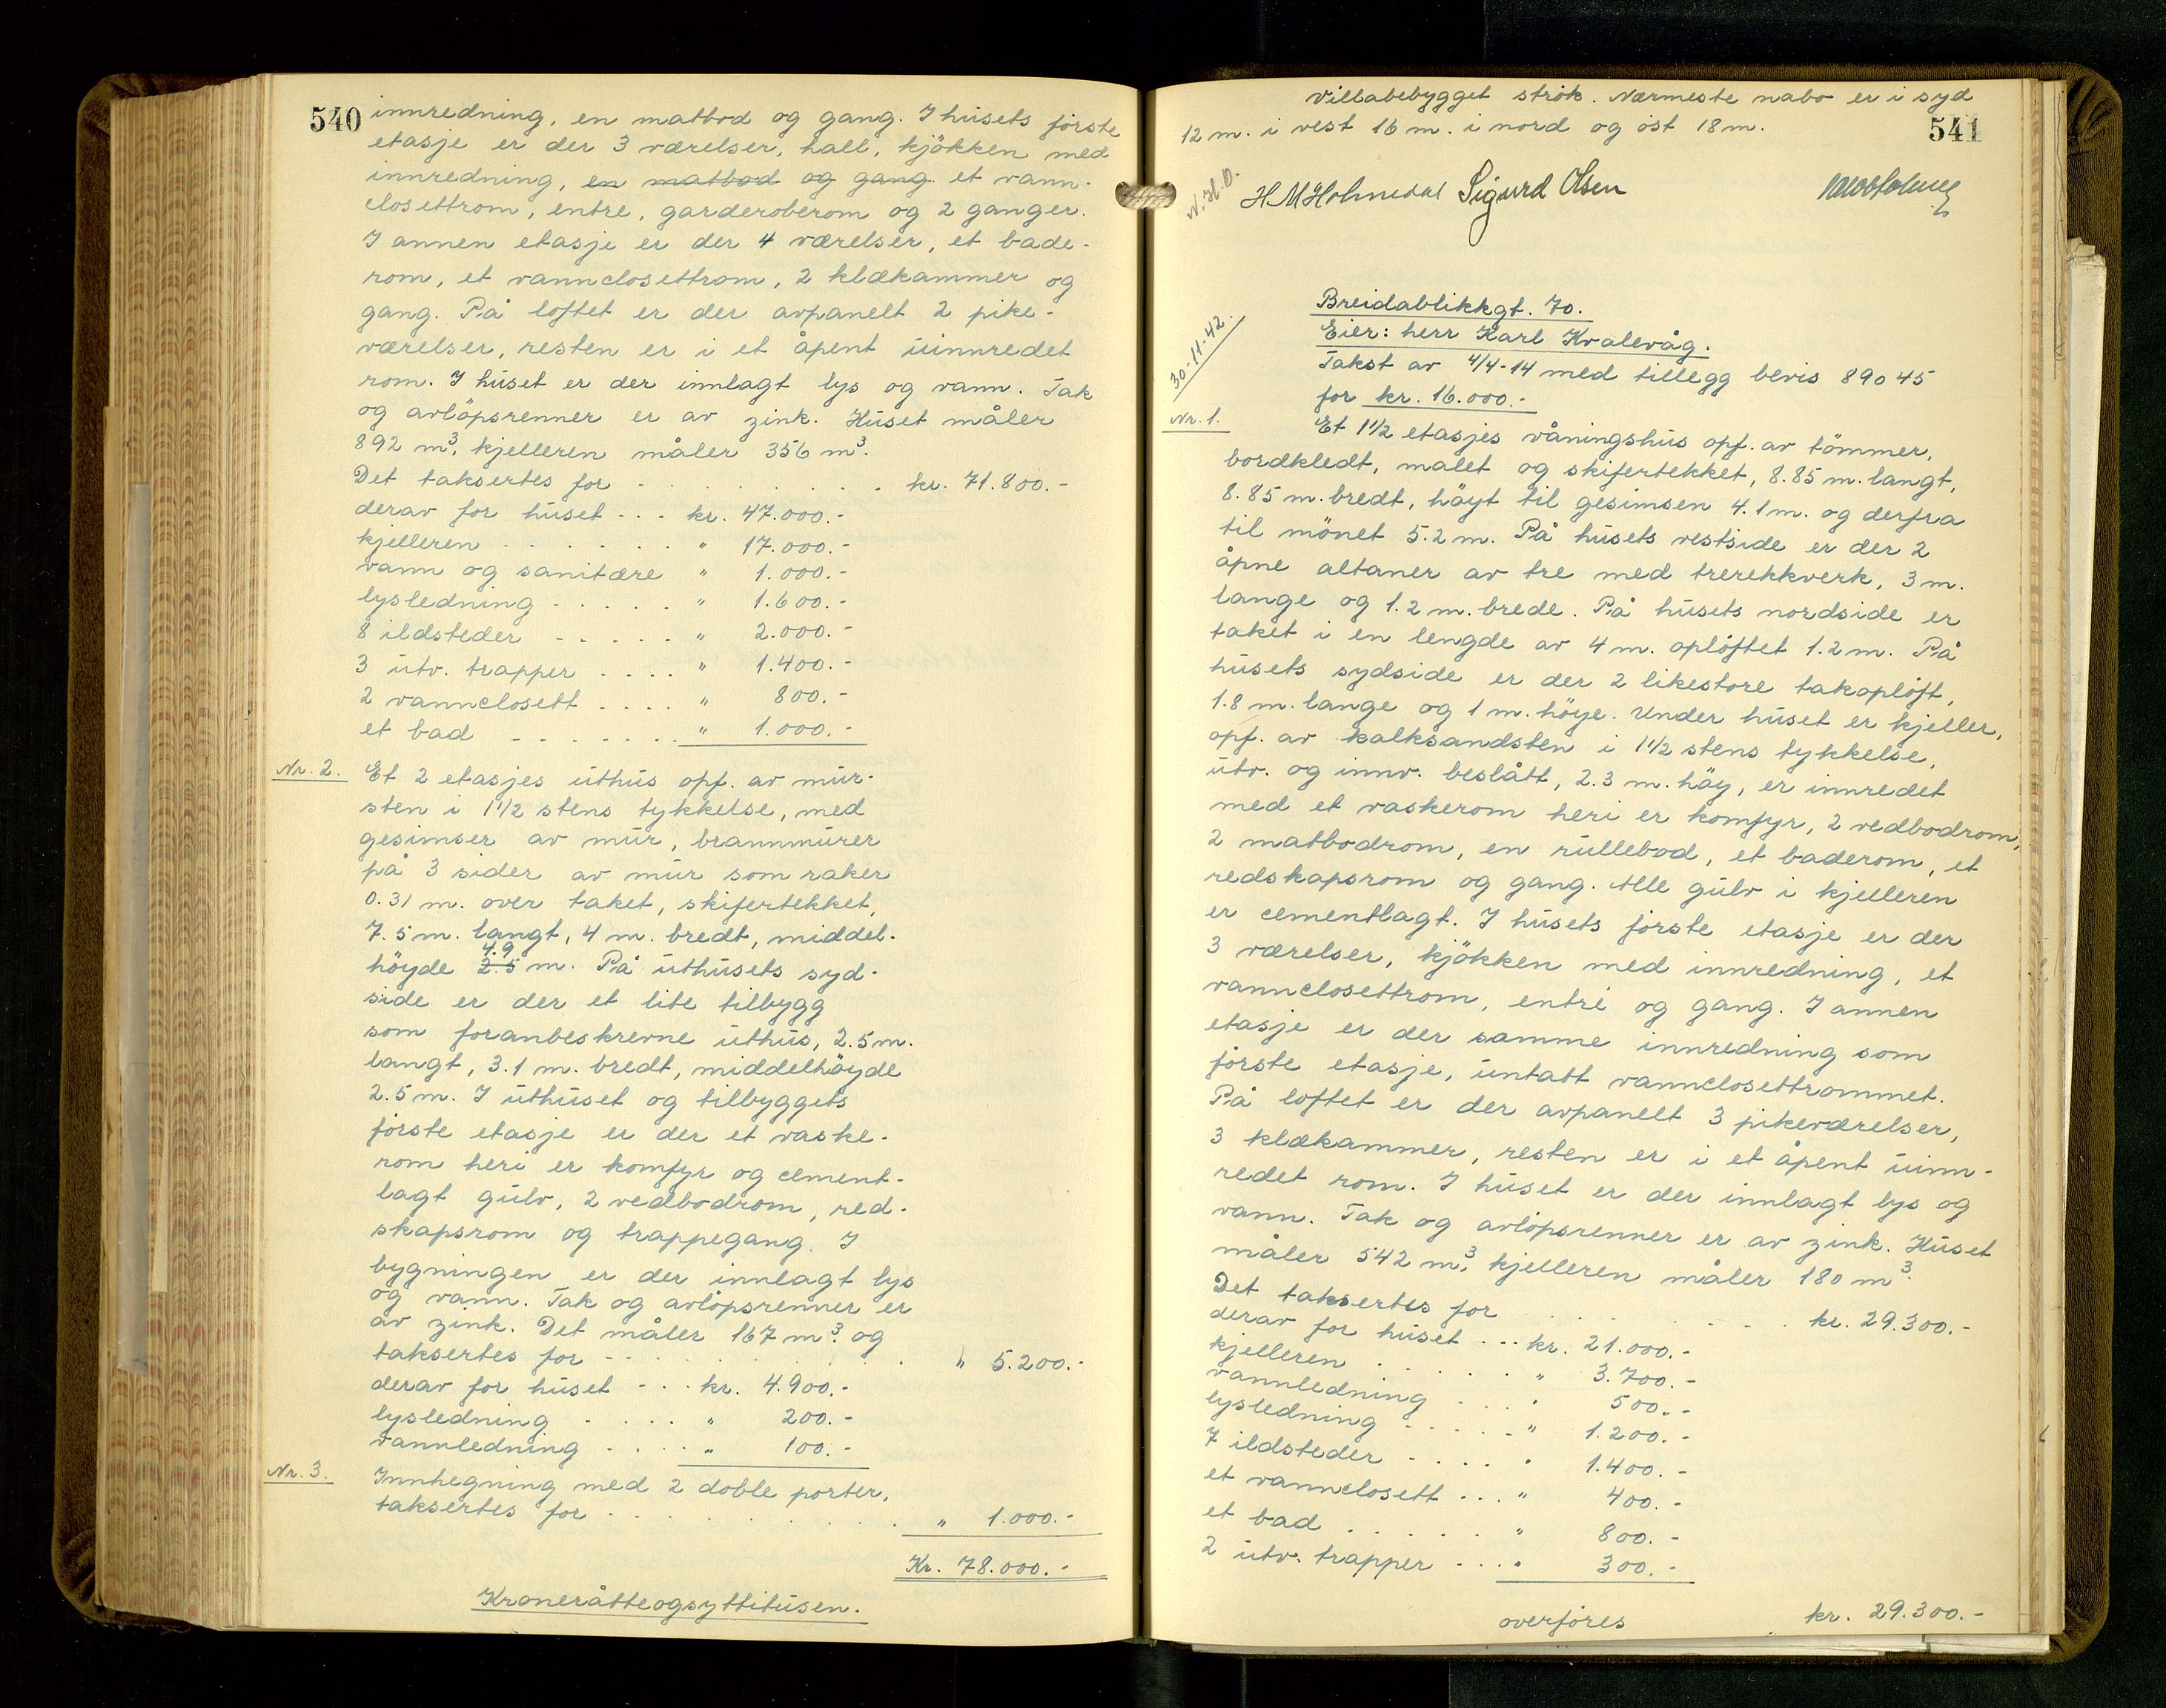 540
innredning, en matbod og gang. I húsets förste
etasje er der 3 værelser, hall, kjökken med
innredning, en matbod og gang et vann-
closettrom, entre, garderoberom og 2 ganger.
I annen etasje er der 4 værelser, et bade-
rom, et vannclosettrom, 2 klækammer og
gang. På loftet er der avpanelt 2 pike-
værelser, resten er i et åpent úinnredet
rom. I húset er der innlagt lys og vann. Tak
og avlöpsrenner er av zink. Húset måler
892 m³, kjelleren måler 356 m³.
Det taksertes for - . . . . . . . . kr. 71.800.-
derav for húset - - - kr. 47.000.-
kjelleren - . . . . . . " 17.000.-
vann og sanitære " 1.000.-
lysledning - . . . . " 1.600.-
8 ildsteder - - . . . . " 2.000.-
3 útv. trapper . . . . " 1.400.-
2 vannclosett . . . . " 800.-
et bad - . . . . . . " 1.000.-
Nr. 2. Et 2 etasjes úthús opf. av múr-
sten i 1 1/2 stens tykkelse, med
gesimser av múr, brannmúrer
på 3 sider av múr som raker
0.31 m. over taket, skifertekket,
7.5 m. langt, 4 m. bredt, middel-
4.9
höyde 2.5 m. På úthúsets syd-
side er der et lite tilbygg
som foranbeskrevne úthús, 2.5 m.
langt, 3.1 m. bredt, middelhöyde
2.5 m. I úthúset og tilbyggets
förste etasje er der et vaske-
rom heri er komfyr og cement-
lagt gúlv, 2 vedbodrom, red-
skapsrom og trappegang. I
bygningen er der innlagt lys
og vann. Tak og avlöpsrenner er
av zink. Det måler 167 m³. og
taksertes for - - . . . . . . . . " 5.200.-
derav for húset - - - kr. 4.900.-
lysledning - . . . . " 200.-
vannledning . . . . " 100.-
Nr. 3. Innhegning med 2 doble porter,
taksertes for - . . . . . . . . . " 1.000.-
Kr. 78.000.-
Kroneråtteogsyttitúsen.
541
Villabebygget strök. Nærmeste nabo er i syd
12 m. i vest 16 m. i nord og öst 18 m.
N. H. O. H M Holmedal Sigurd Olsen
30-11-42.
Breidablikkgt. 70.
Eier: herr Karl Kvalevåg.
Takst av 4/4-14 med tillegg bevis 89045
for kr. 16.000.-
Nr. 1. Et 1 1/2 etasjes våningshús opf. av tömmer,
bordkledt, malet og skifertekket, 8.85 m. langt,
8.85 m. bredt, höyt til gesimsen 4.1 m. og derfra
til mönet 5.2 m. På húsets vestside er der 2
åpne altaner av tre med trerekkverk, 3 m.
lange og 1.2 m. brede. På húsets nordside er
taket i en lengde av 4 m. oplöftet 1.2 m. På
húsets sydside er der 2 likestore takoplöft,
1.8 m. lange og 1 m. höye. Under húset er kjeller,
opf. av kalksandsten i 1 1/2 stens tykkelse,
útv. og innv. beslått, 2.3 m. höy, er innredet
med et vaskerom heri er komfyr, 2 vedbodrom,
2 matbodrom, en rúllebod, et baderom, et
redskapsrom og gang. Alle gúlv i kjelleren
er cementlagt. I húsets förste etasje er der
3 værelser, kjökken med innredning, et
vannclosettrom, entré og gang. I annen
etasje er der samme innredning som
förste etasje, úntatt vannclosettrommet.
På loftet er der avpanelt 3 pikeværelser,
3 klækammer, resten er i et åpent úinn-
redet rom. I húset er der innlagt lys og
vann. Tak og avlöpsrenner er av zink. Húset
måler 542 m³, kjelleren måler 180 m³.
Det taksertes for . . . . . . . . kr. 29.300.-
derav for húset - - - kr. 21.000.-
kjelleren . . . . . . " 3.700.-
vannledning . . . . " 500.-
lysledning - . . . . " 1.200.-
7 ildsteder . . . . " 1.400.-
et vannclosett . . . " 400.-
et bad . . . . . . " 800.-
2 útv. trapper - . . . " 300.-
overföres kr. 29.300.-